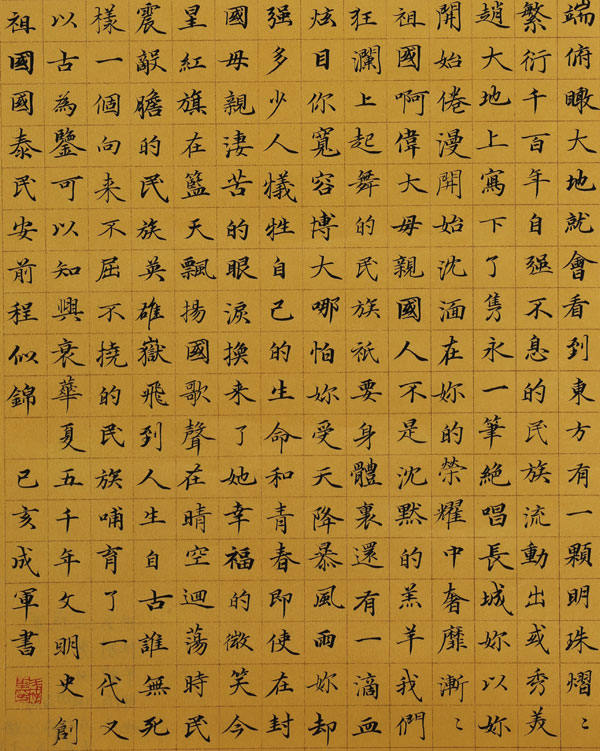 端俯瞰大地就會看到東方有一顆明珠熠〻
繁衍千百年自强不息的民族流動出或秀美
趙大地上寫下了雋永一筆絕唱長城妳以妳
開始倦漫開始沈湎在妳的榮耀中奢靡漸〻
祖國啊偉大母親國人不是沈默的羔羊我們
狂瀾上起舞的民族祇要身體裏還有一滴血
炫目你寬容博大哪怕妳受天降暴風雨妳却
强多少人犧牲自己的生命和青春即使在封
國母親淒苦的眼淚換来了她幸福的微笑今
星紅旗在籃天飄揚國歌聲在晴空迴蕩時民
震敵瞻的民族英雄嶽飛到人生自古誰無死
樣一個向来不屈不撓的民族哺育了一代又
以古為鑒可以知興衰華夏五千年文明史創
祖國國泰民安前程似錦 己亥成軍書